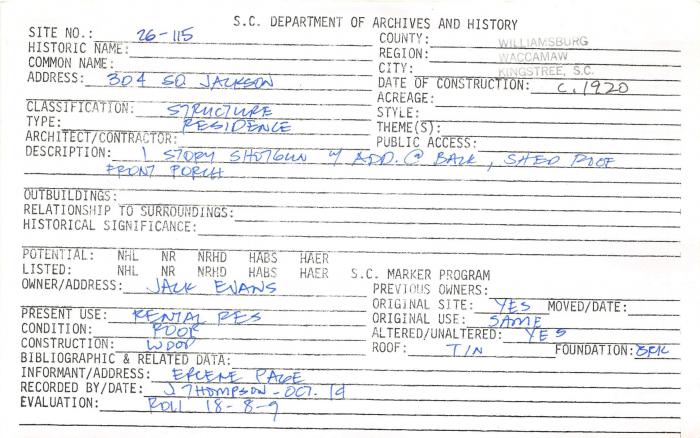 S.C. DEPARTMENT OF ARCHIVES AND HISTORY
SITE NO.: 26-115
HISTORIC NAME:
COMMON NAME:
ADDRESS: 304 SO JACKSON
COUNTY: WILLIAMSBURG
REGION: WACCAMAW
CITY: KINGSTREE, S.C.
DATE OF CONSTRUCTION: C. 1920
ACREAGE:
CLASSIFICATION: STRUCTURE
TYPE: RESIDENCE
ARCHITECT/CONTRACTOR:
STYLE:
THEME(S):
PUBLIC ACCESS:
DESCRIPTION: 1 STORY SHOTGUN W/ ADD. @ BACK, SHED ROOF
FRONT PORCH
OUTBUILDINGS:
RELATIONSHIP TO SURROUNDINGS:
HISTORICAL SIGNIFICANCE:
POTENTIAL: NHL NR NRHD HABS HAER
LISTED: NHL NR NRHD HABS HAER S.C. MARKER PROGRAM
OWNER/ADDRESS: JACK EVANS
PREVIOUS OWNERS:
ORIGINAL SITE: YES MOVED/DATE:
PRESENT USE: RENTAL RES
ORIGINAL USE: SAME
CONDITION: POOR
ALTERED/UNALTERED: YES
CONSTRUCTION: WOOD
ROOF: TIN FOUNDATION: BRK
BIBLIOGRAPHIC & RELATED DATA:
INFORMANT/ADDRESS: PAGE
RECORDED BY/DATE: J THOMPSON - OCT. 19
EVALUATION: ROLL 18-8-9